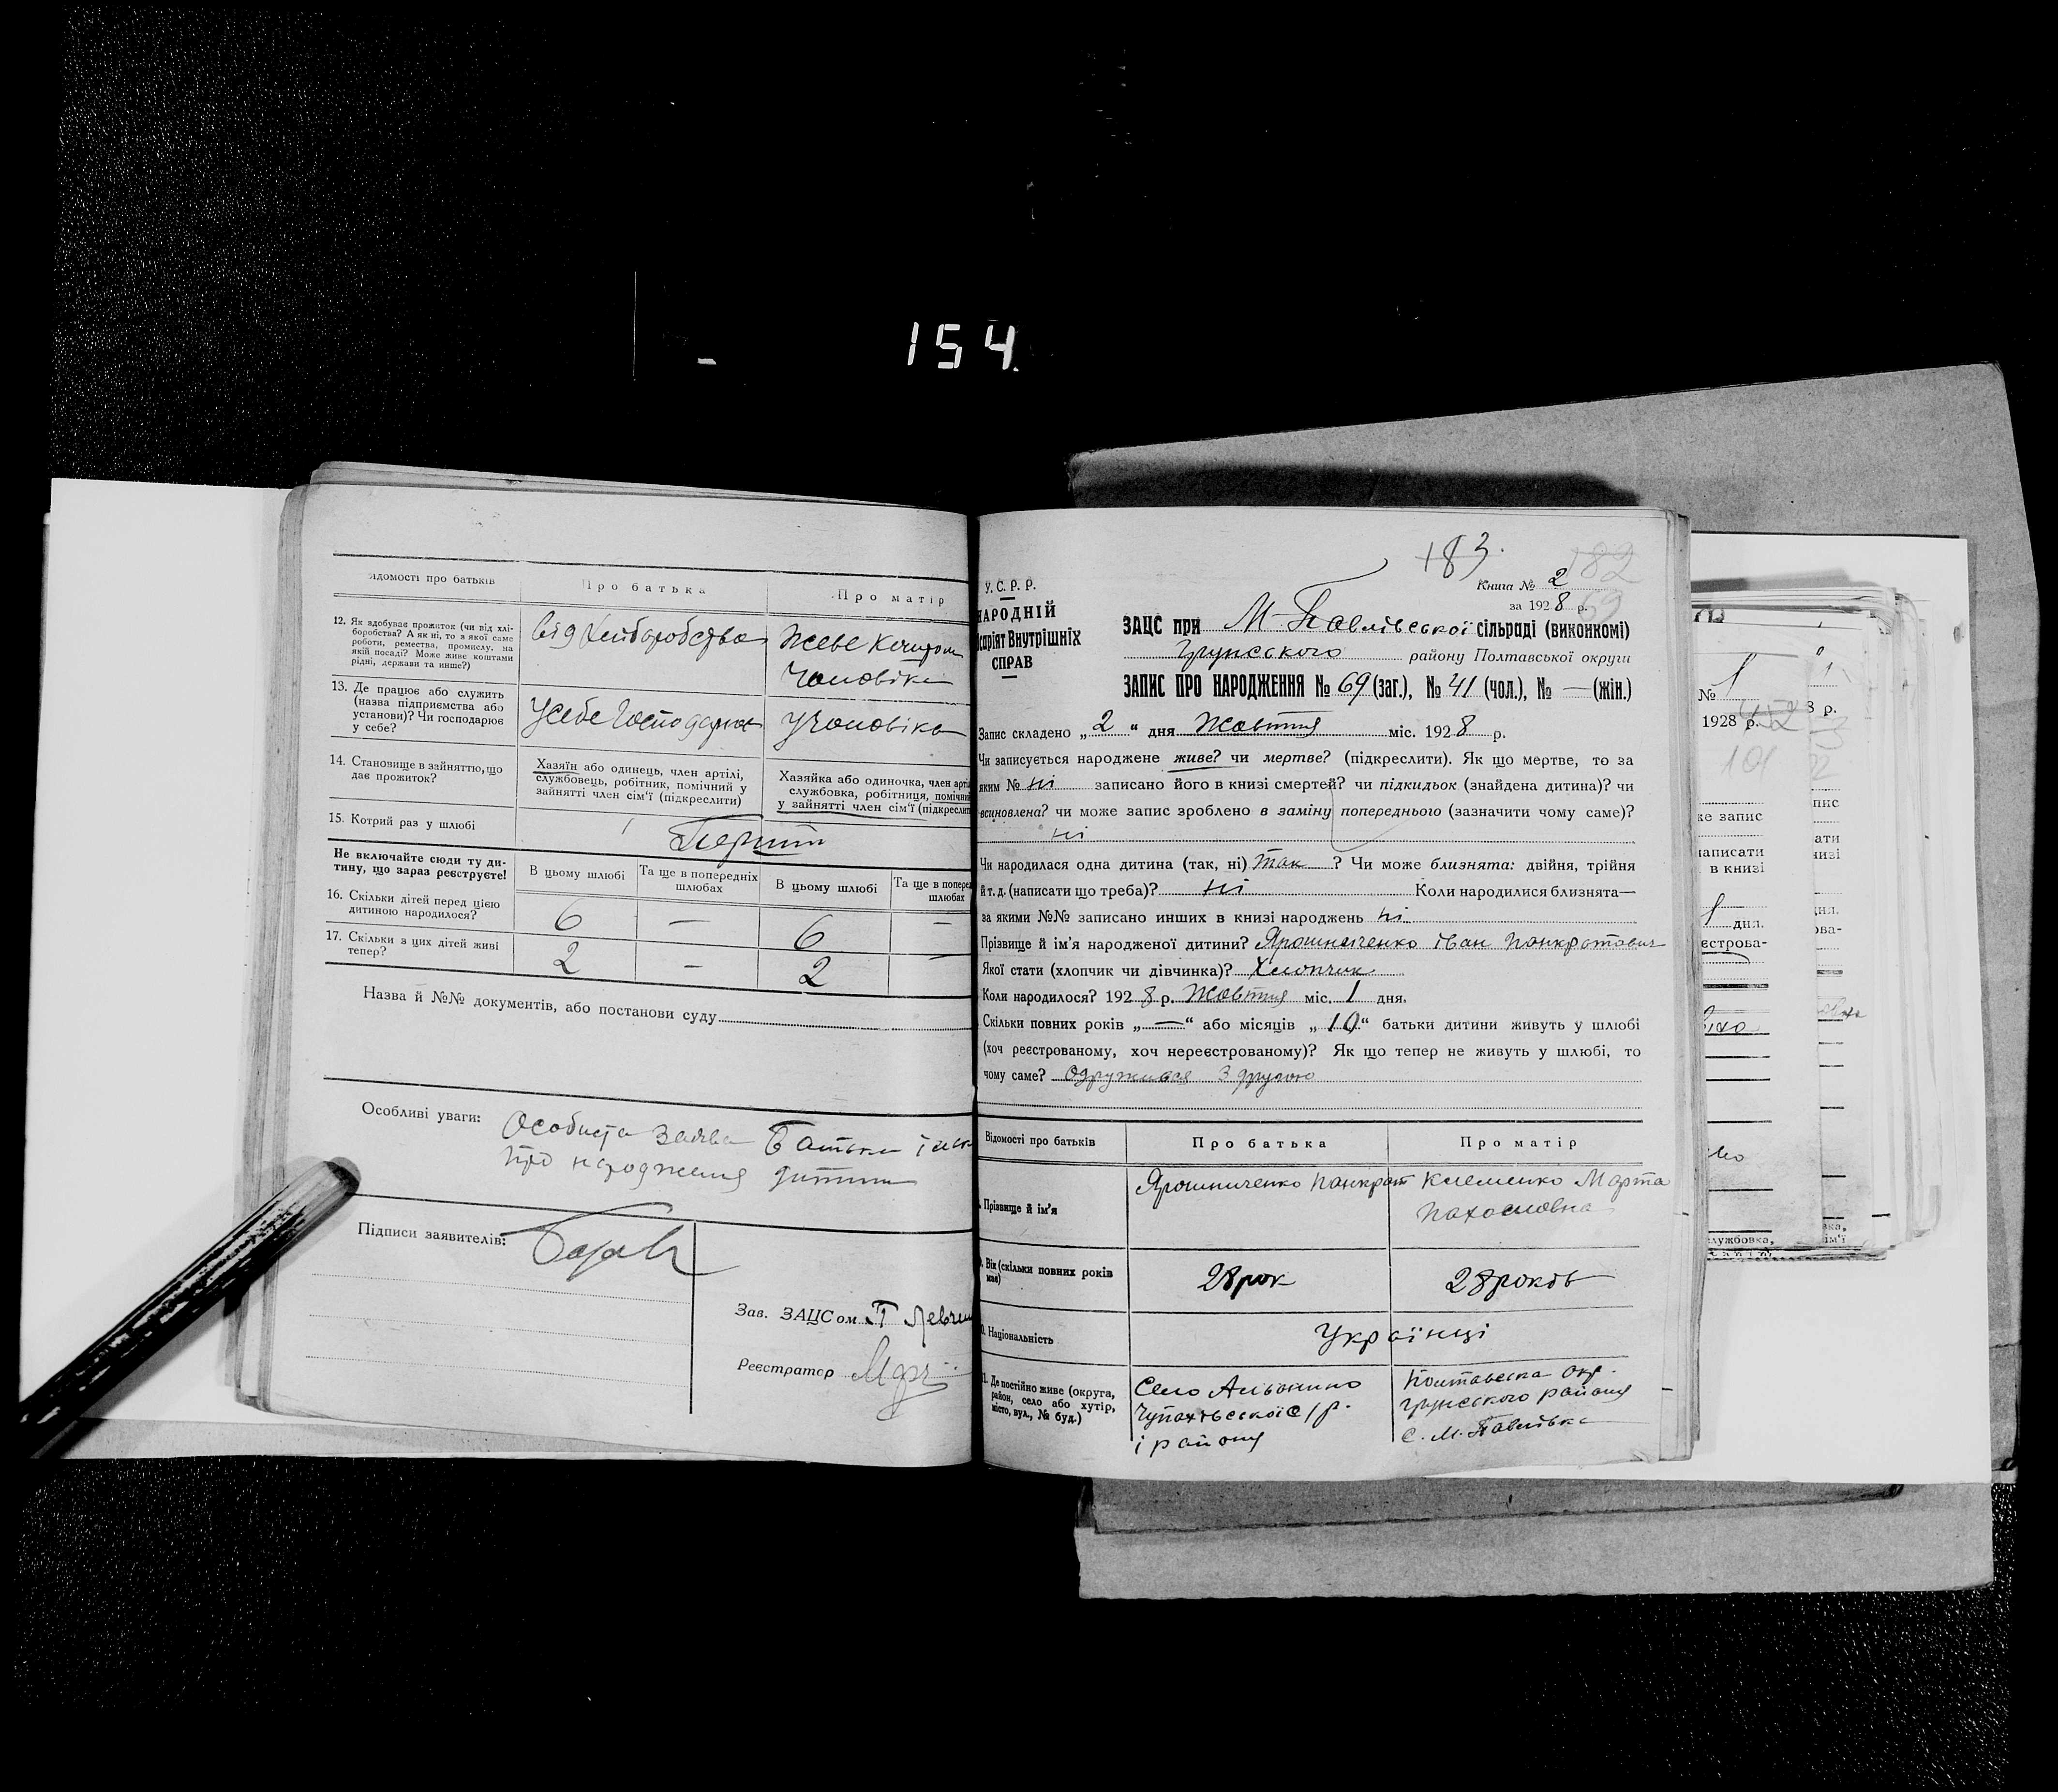 154.
Відомості про батьків
Про батька
Про матір
12. Як здобуває прожиток (чи від хлі-
боробства? А як ні, то з якої саме
роботи, ремества, промислу, на
якій посаді? Може живе коштами
рідні, держави та инше?)
від хліборобства
Живе коштом
чоловіка
13. Де працює або служить
(назва підприємства або
установи)? Чи господарює
у себе?
У себе господарює
у чоловіка
14. Становище в зайняттю, що
дає прожиток?
Хазяїн або одинець, член артілі,
службовець, робітник, помічний у
зайнятті член сім'ї (підкреслити)
Хазяйка або одиночка, член арті
службовка, робітниця, помічни
у зайнятті член сім'ї (підкреслит
15. Котрий раз у шлюбі
Перший
Не включайте сюди ту ди-
тину, що зараз реєструєте!
В цьому шлюбі
Та ще в попередніх
шлюбах
В цьому шлюбі
Та ще в поперед
шлюбах
16. Скільки дітей перед цією
дитиною народилося?
6 — 6 —
17. Скільки з цих дітей живі
тепер?
2 — 2 —
Назва й №№ документів, або постанови суду
Особливі уваги:
Особиста заява Батька
про народження дитини
Підписи заявителів:
Зав. ЗАЦСом
Реєстратор
183.
182
Книга № 2
за 1928 р.
У.С.Р.Р.
НАРОДНІЙ
ісаріят Внутрішніх
СПРАВ
ЗАЦС при М-Павлівської сільраді (виконкомі)
Грунського району Полтавської округи
ЗАПИС ПРО НАРОДЖЕННЯ № 69 (заг.), № 41 (чол.), № — (жін.)
Запис складено „2“ дня Жовтня міс. 1928 р.
Чи записується народжене живе? чи мертве? (підкреслити). Як що мертве, то за
яким № ні записано його в книзі смертей? чи підкидьок (знайдена дитина)? чи
всиновлена? чи може запис зроблено в заміну попереднього (зазначити чому саме)?
ні
Чи народилася одна дитина (так, ні) так ? Чи може близнята: двійня, трійня
й т. д. (написати що треба)? ні Коли народилися близнята—
за якими №№ записано инших в книзі народжень ні
Прізвище й ім'я народженої дитини? Ярошниченко Іван Панкратович
Якої стати (хлопчик чи дівчинка)? Хлопчик
Коли народилося? 1928 р. Жовтня міс. 1 дня.
Скільки повних років „—“ або місяців „10“ батьки дитини живуть у шлюбі
(хоч реєстрованому, хоч нереєстрованому)? Як що тепер не живуть у шлюбі, то
чому саме? Одружився з другою
Відомості про батьків
Про батька
Про матір
Прізвище й ім'я
Ярошниченко Панкрат
Клеменко Марта
Вік (скільки повних років
має)
28 рок
28 років
Національність
Українці
Де постійно живе (округа,
район, село або хутір,
місто, вул., № буд.)
Село
Чупахівської с/р.
і району
Полтавська окр.
Грунського району
с. М. Павлівка
№ 1
1928 р.
8 р.
101
же запис
написати
в книзі
1 дня.
єстрова-
службовка,